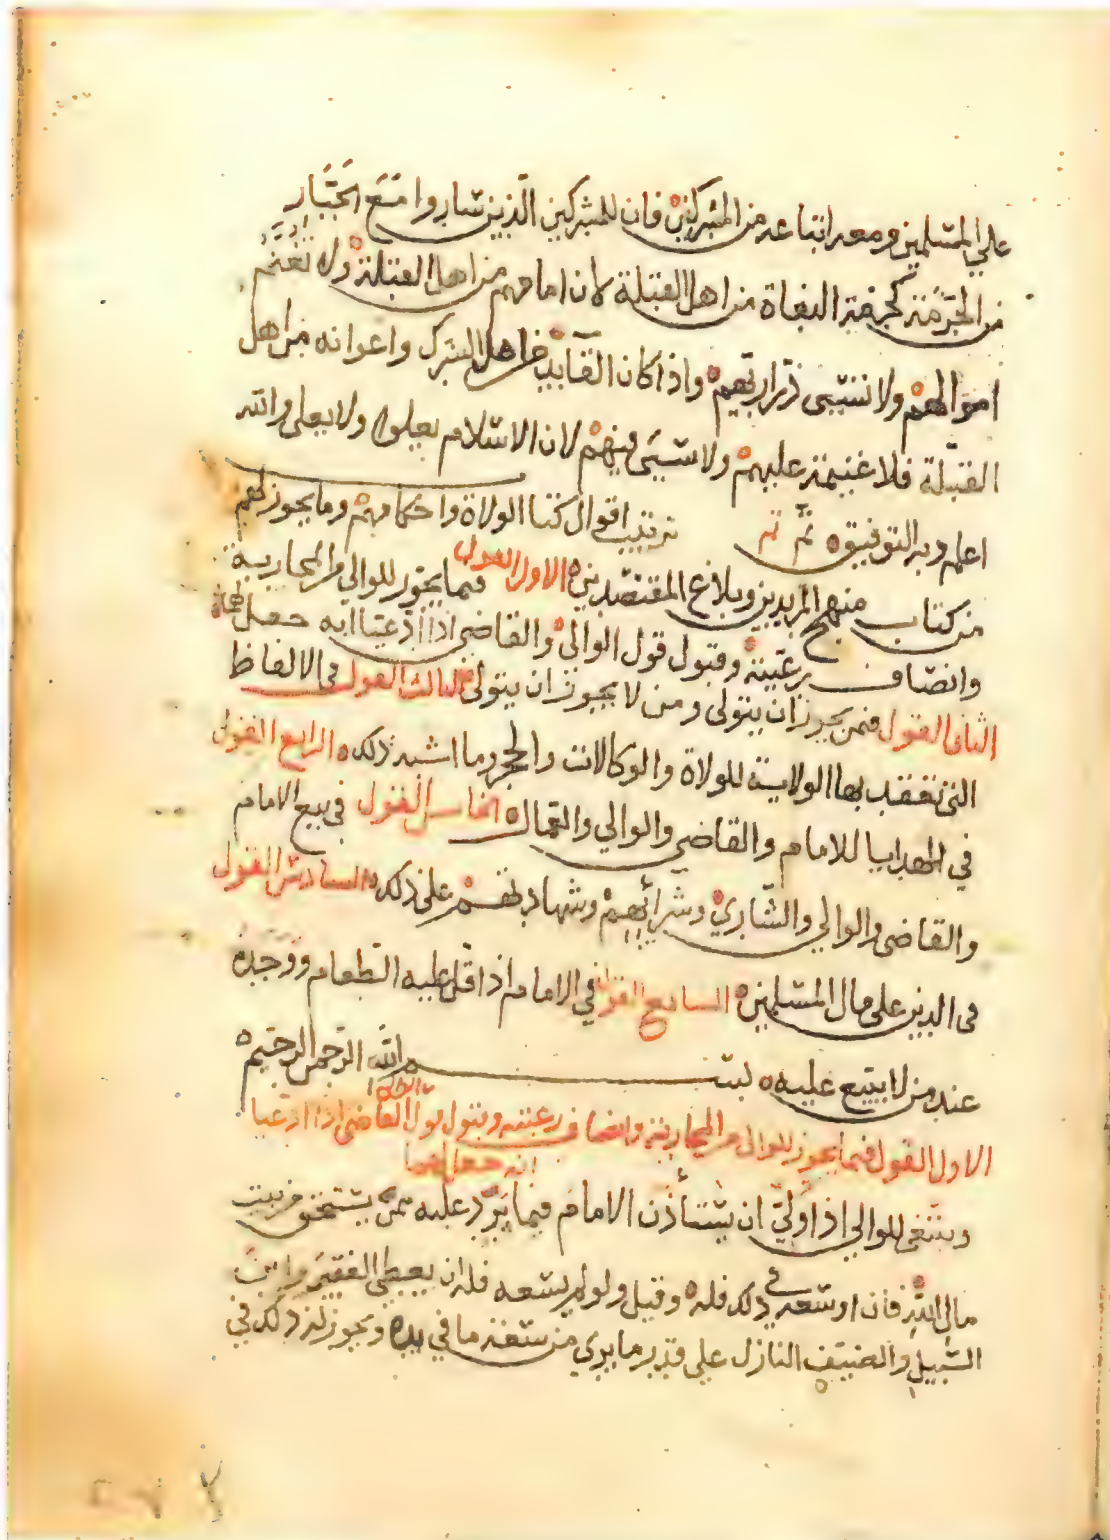 علي المسلمين ومعه اتباعه من المشركين فان للمشركين الذين ساروا مع الجبار
من الحرمة كحرمة البغاة من اهل القبلة لان امامهم من اهل القبلة ولا تغنم
اموالهم ولا تسبى ذراريهم واذا كان القايد من اهل الشرك واعوانه من اهل
القبلة فلا غنيمة عليهم ولا سبي فيهم لان الاسلام يعلوا ولا يعلى والله
اعلم وبه التوفيق تم تم ترتيب اقوال كتاب الولاة واحكامهم وما يجوز لهم
من كتاب منهج المريدين وبلاغ المقتصدين الاول القول فيما يجوز للوالي من المحاربة
وانصاف رعيته وقبول قول الوالي والقاضي اذا ادعيا انه جعل لهما
الثاني القول فيمن يجوز ان يتولى ومن لا يجوز ان يتولى الثالث القول في الالفاظ
التي تنعقد بها الولاية للولاة والوكالات والحجر وما اشبه ذلك الرابع القول
في الهدايا للامام والقاضي والوالي والعمال الخامس القول في بيع الامام
والقاضي والوالي والشاري وشرائهم وشهادتهم على ذلك السادس القول
في الدين على مال المسلمين السابع القول في الامام اذا قل عليه الطعام ووجده
عند من لا يبيع عليه بسم الله الرحمن الرحيم
الاول القول فيما يجوز للوالي من المحاربة وانصاف رعيته وقبول قول القاضي اذا ادعيا
انه جعل لهما
وينبغي للوالي اذا ولي ان يستأذن الامام فيما يرد عليه ممن يستحق من بيت
مال الله فان اوسعه في ذلك فله وقيل ولو لم يسعه فله ان يعطي الفقير وابن
السبيل والضيف النازل على قدر ما يرى من سعة ما في يده ويجوز له ذلك في